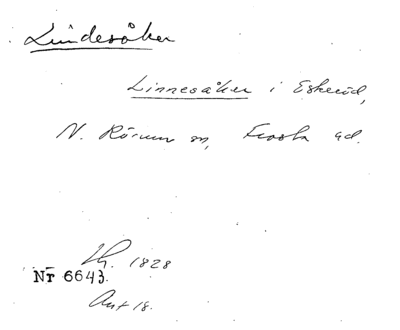 Lindesåker
Linnesåker i Eskeröd,
N. Rörum sn, Frosta hd.
Lh. 1828
Nr 6643.
Akt 18.